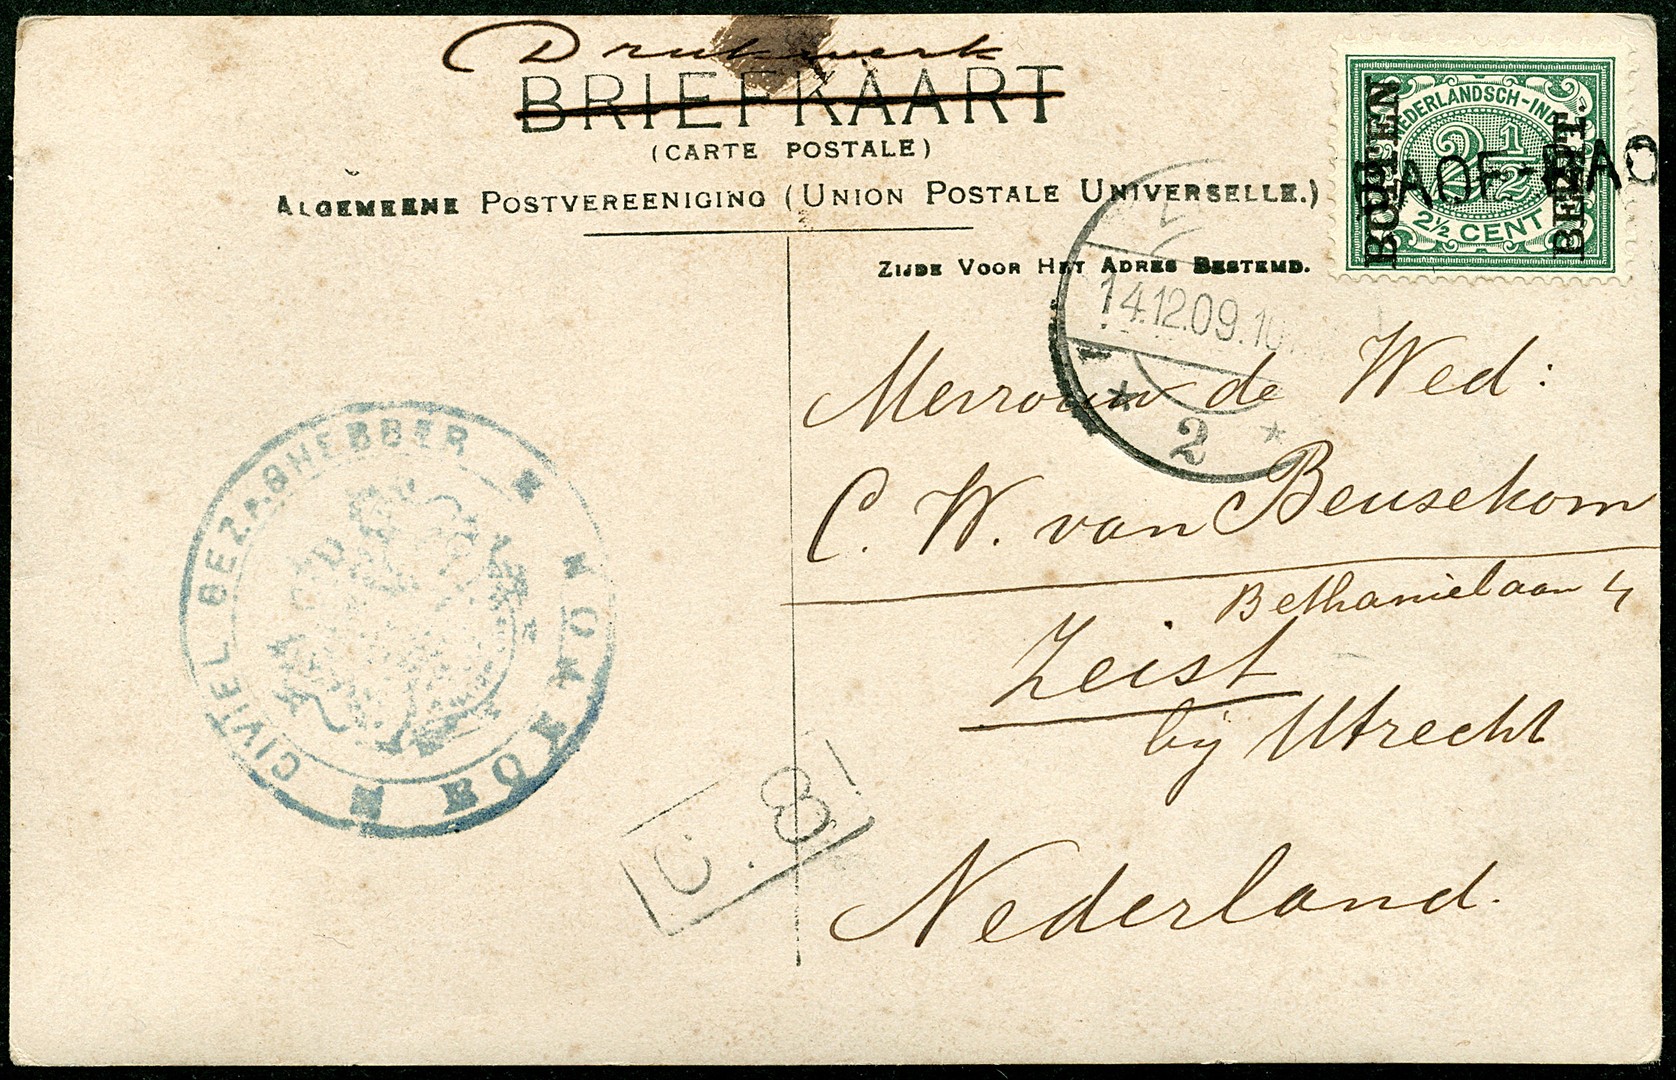 Drukwerk
BRIEFKAART
(CARTE POSTALE)
ALGEMEENE POSTVEREENIGING (UNION POSTALE UNIVERSELLE.)
ZIJDE VOOR HET ADRES BESTEMD.
NEDERLANDSCH-IND
2 1/2
2½ CENT
BUITEN
BEZIT.
14.12.09.10
2
Mevrouw de Wed:
C. W. van Beusekom
Bethanielaan 4
Zeist
bij Utrecht
Nederland.
CIVIEL GEZAGHEBBER
C. 8